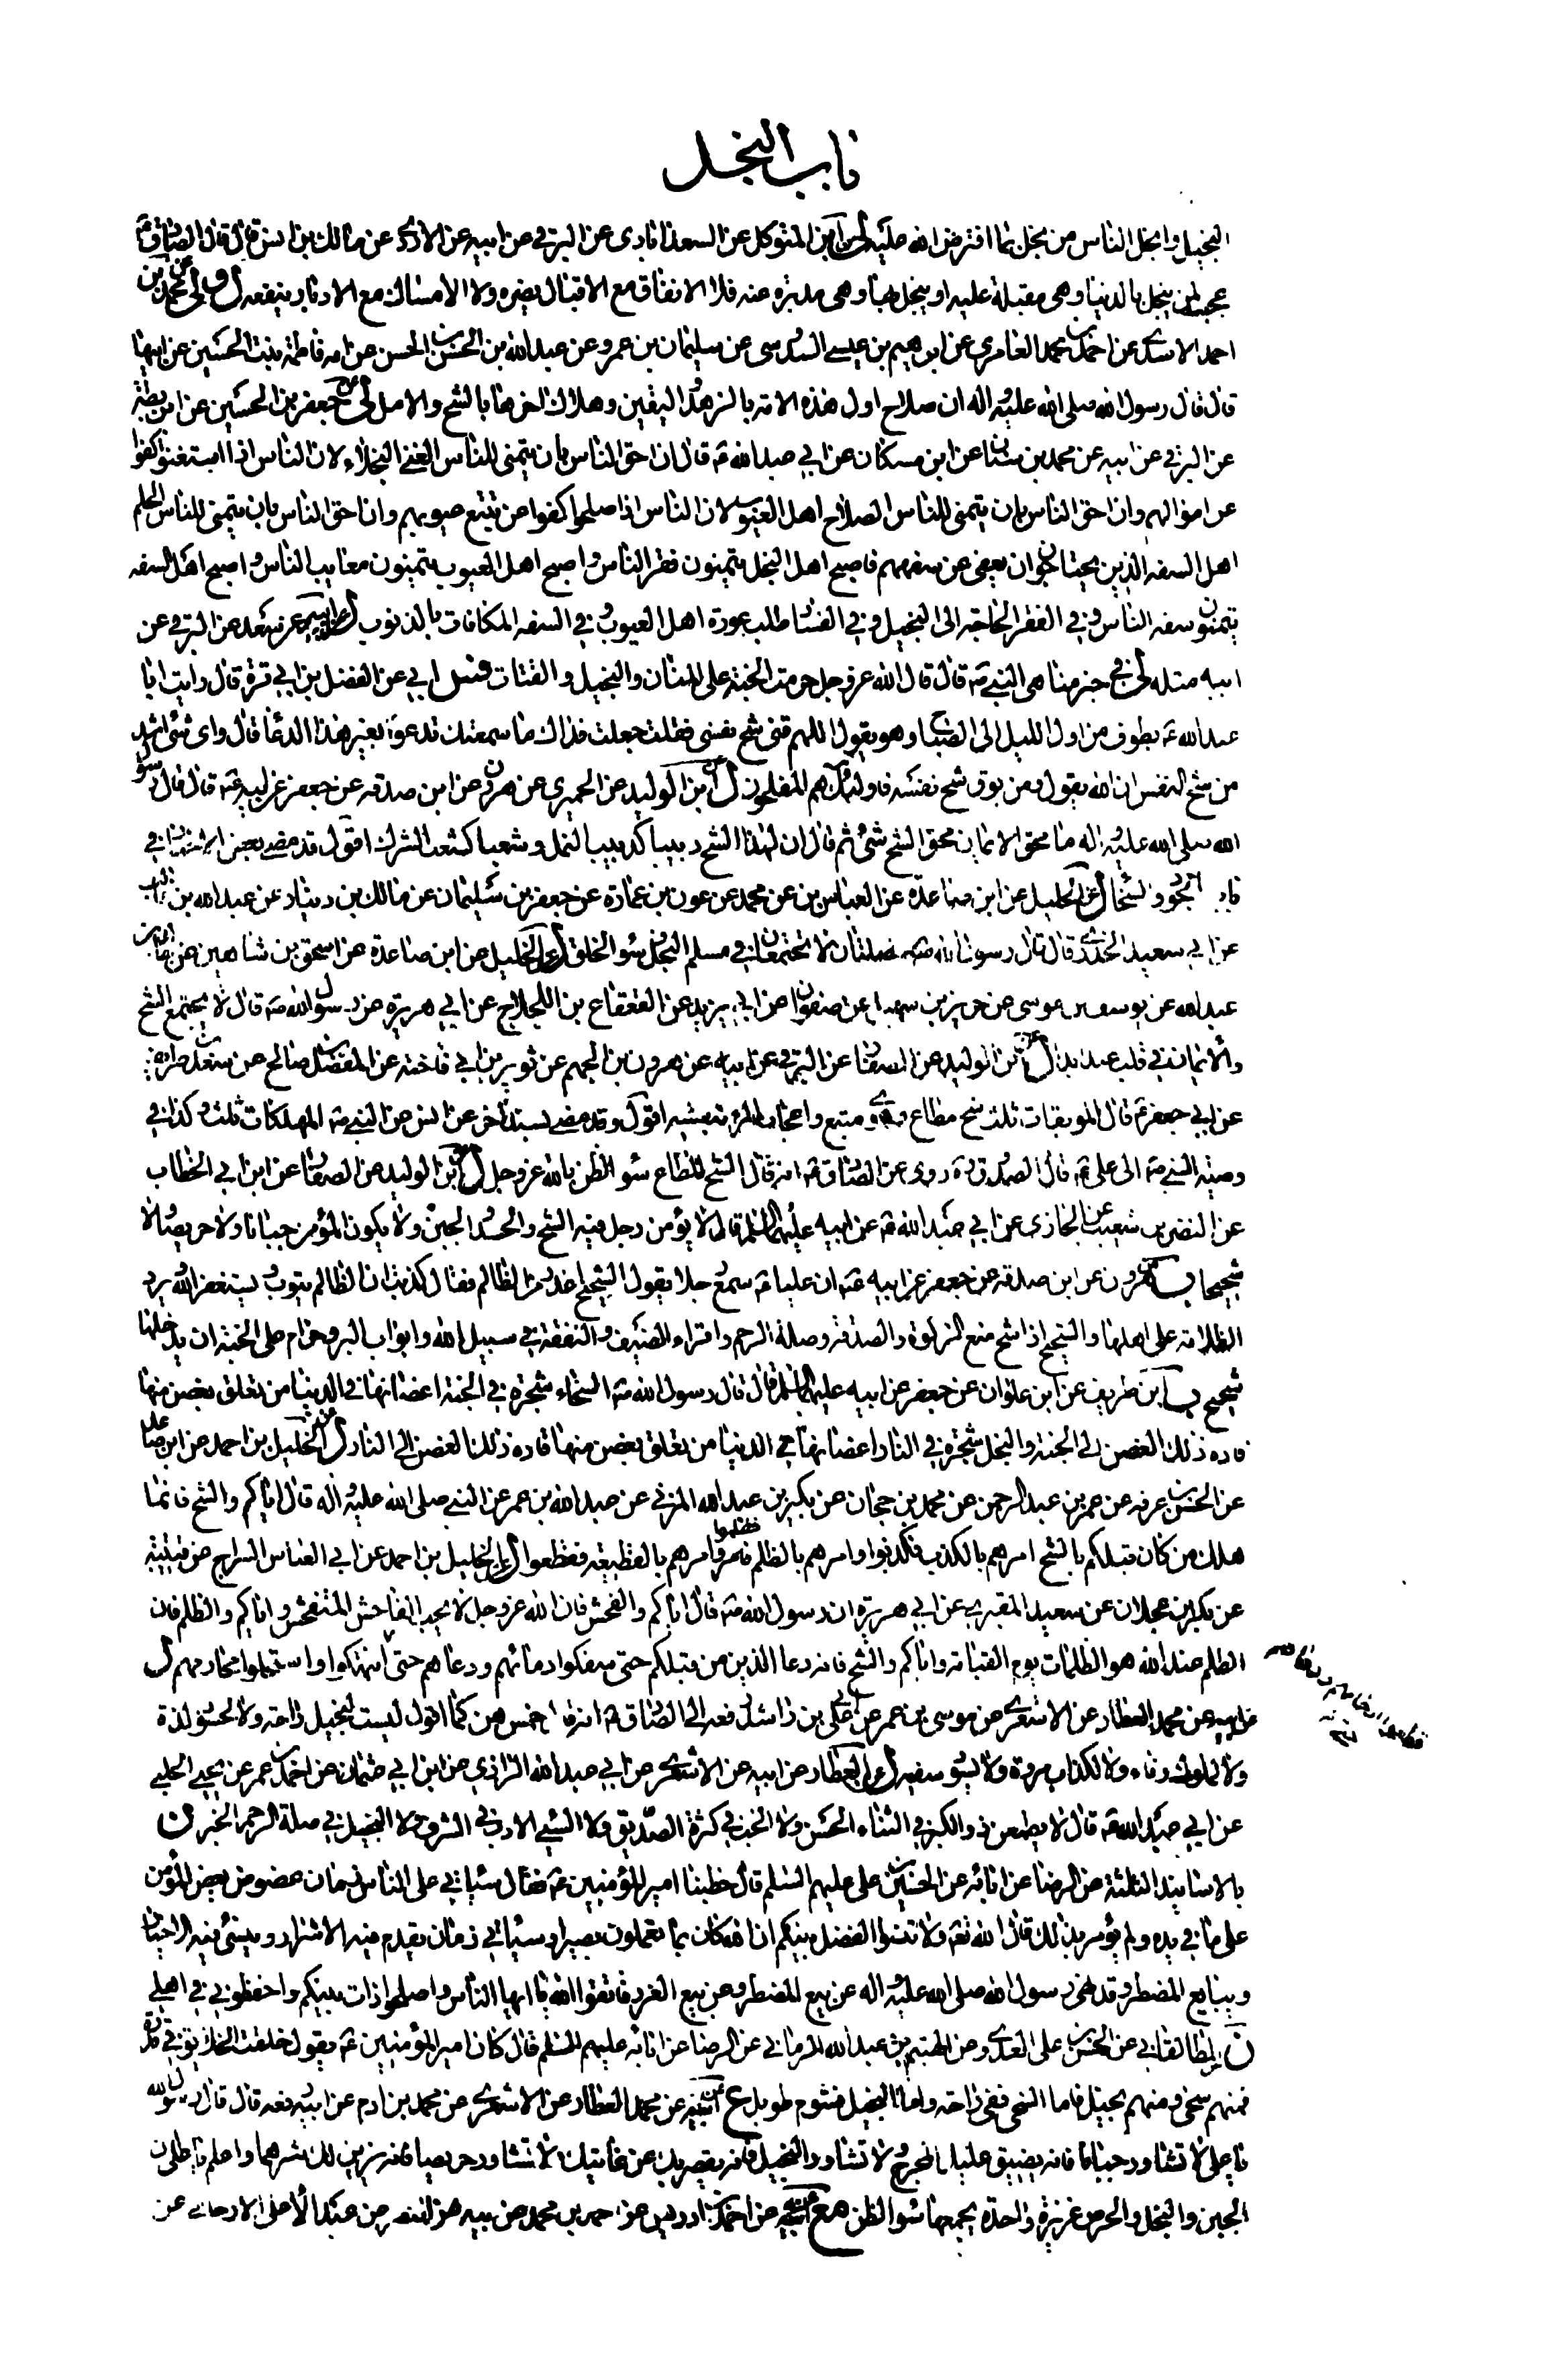 باب البخل
البخيل وابخل الناس من بخل بما افترض الله عليه ل ابن المتوكل عن السعدابادى عن البرقي عن ابيه عن الازدي عن مالك بن انس قال قال الصادق ع
عجبت لمن يبخل بالدنيا وهى مقبلة عليه او يبخل بها وهى مدبرة عنه فلا الانفاق مع الاقبال يضره ولا الامساك مع الادبار ينفعه ل لى عن محمد بن
احمد الاسدي عن احمد بن محمد العامري عن ابرهيم بن عيسى السدوسى عن سليمان بن عمرو عن عبدالله بن الحسن بن الحسن عن امه فاطمة بنت الحسين عن ابيها
قال قال رسول الله صلى الله عليه واله ان صلاح اول هذه الامة بالزهد واليقين وهلاك اخرها بالشح والامل لى عن جعفر بن الحسين عن ابن بطة
عن البرقي عن ابيه عن محمد بن سنان عن ابن مسكان عن ابي عبدالله ع قال ان احق الناس بان يتمنى للناس الغنى البخلاء لان الناس اذا استغنوا كفوا
عن اموالهم وان احق الناس بان يتمنى للناس الصلاح اهل العيوب لان الناس اذا صلحوا كفوا عن تتبع عيوبهم وان احق الناس بان يتمنى للناس الحلم
اهل السفه الذين يحتاجون ان يعفى عن سفههم فاصبح اهل البخل يتمنون فقر الناس واصبح اهل العيوب يتمنون معايب الناس واصبح اهل السفه
يتمنون سفه الناس وفي الفقر الحاجة الى البخيل وفي الفساد طلب عورة اهل العيوب وفي السفه المكافات بالذنوب ل عن ابيه عن سعد عن البرقي عن
ابيه مثله لى في خبر مناهى النبي ص قال قال الله عز وجل حرمت الجنة على المنان والبخيل والقتات فس ابي عن الفضل بن ابي قرة قال رايت ابا
عبدالله ع يطوف من اول الليل الى الصباح وهو يقول اللهم قنى شح نفسى فقلت جعلت فداك ما سمعتك تدعو بغير هذا الدعا قال واى شئ اشد
من شح النفس ان الله يقول ومن يوق شح نفسه فاولئك هم المفلحون ل عن ابن الوليد عن الحميرى عن هرون عن ابن صدقة عن جعفر عن ابيه ع قال قال رسول
الله صلى الله عليه واله ما محق الايمان محق الشح شئ ثم قال ان لهذا الشح دبيبا كدبيب النمل وشعبا كشعب الشرك اقول قد مضى بعض الاخبار في
باب الجود والسخا ل عن الخليل عن ابن صاعدة عن العباس بن محمد عن عون بن عمارة عن جعفر بن سليمان عن مالك بن دينار عن عبدالله بن غالب
عن ابي سعيد الخدري قال قال رسول الله ص خصلتان لا تجتمعان في مسلم البخل وسوء الخلق ل عن الخليل عن ابن صاعدة عن اسحق بن شاهين عن خالد بن
عبدالله عن يوسف بن موسى عن حريز بن سهيل عن صفوان عن ابي يزيد عن القعقاع بن اللجلاج عن ابي هريرة عن رسول الله ص قال لا يجتمع الشح
والايمان في قلب عبد ابدا ل عن ابن الوليد عن الصفار عن البرقي عن ابيه عن هرون بن الجهم عن ثوير بن ابي فاختة عن المفضل بن صالح عن سعد بن طريف
عن ابي جعفر ع قال الموبقات ثلث شح مطاع وهوى متبع واعجاب المرء بنفسه اقول وقد مضى بسند اخر عن انس عن النبي ص المهلكات ثلث وكذا في
وصية النبي ص الى على ع قال الصدوق ره روى عن الصادق ع انه قال الشح المطاع سوء الظن بالله عز وجل ل عن ابن الوليد عن الصفار عن ابن ابي الخطاب
عن النضر بن شعيب عن الجازى عن ابي عبدالله ع عن ابيه عليهما السلم قال لا يؤمن رجل فيه الشح والحسد والجبن ولا يكون المؤمن جبانا ولا حريصا ولا
شحيحا ب هرون عن ابن صدقة عن جعفر عن ابيه ع ان عليا ع سمع رجلا يقول الشحيح اغدر من الظالم فقال كذبت ان الظالم يتوب ويستغفر الله ويرد
الظلامة على اهلها والشحيح اذا شح منع الزكوة والصدقة وصلة الرحم واقراء الضيف والنفقة في سبيل الله وابواب البر وحرام على الجنة ان يدخلها
شحيح ب ابن ظريف عن ابن علوان عن جعفر عن ابيه عليهما السلم قال قال رسول الله ص السخاء شجرة في الجنة اغصانها في الدنيا من تعلق بغصن منها
قاده ذلك الغصن الى الجنة والبخل شجرة في النار اغصانها في الدنيا من تعلق بغصن منها قاده ذلك الغصن الى النار ل عن الخليل بن احمد عن ابن صاعد
عن الحسن بن عرفة عن عمر بن عبد الرحمن عن محمد بن جحان عن بكير بن عبدالله المزنى عن عبدالله بن عمر عن النبي صلى الله عليه واله قال اياكم والشح فانما
هلك من كان قبلكم بالشح امرهم بالكذب فكذبوا وامرهم بالظلم فظلموا وامرهم بالقطيعة فقطعوا ل عن الخليل بن احمد عن ابي العباس السراج عن قتيبة
عن بكر بن عجلان عن سعيد المقبرى عن ابي هريرة ان رسول الله ص قال اياكم والفحش فان الله عز وجل لا يحب الفاحش المتفحش واياكم والظلم فان
الظلم عند الله هو الظلمات يوم القيامة واياكم والشح فانه دعا الذين من قبلكم حتى سفكوا دمائهم ودعاهم حتى انتهكوا واستحلوا محارمهم ل
عن ابيه عن محمد العطار عن الاشعري عن موسى بن عمر عن ابي على بن راشد رفعه الى الصادق ع انه قال خمس هن كما اقول ليست لبخيل راحة ولا لحسود لذة
ولا لملوك وفاء ولا لكذاب مروة ولا يسود سفيه ل عن العطار عن ابيه عن الاشعري عن ابي عبدالله الرازي عن ابن ابي عثمان عن احمد بن عمر عن يحيى الحلبي
عن ابي عبدالله ع قال لا يطمعن ذو الكبر في الثناء الحسن ولا الخب في كثرة الصديق ولا السيئ الادب في الشرف ولا البخيل في صلة الرحم الخبر ن
بالاسانيد الثلثة عن الرضا عن ابائه عن الحسين بن على عليهم السلم قال خطبنا امير المؤمنين ع فقال سياتي على الناس زمان عضوض يعض المؤمن
على ما في يده ولم يؤمر بذلك قال الله تع ولا تنسوا الفضل بينكم ان الله كان بما تعملون بصيرا وسياتي زمان يقدم فيه الاشرار وينسئ فيه الاخيار
ويبايع المضطر وقد نهى رسول الله صلى الله عليه واله عن بيع المضطر وعن بيع الغرر فاتقوا الله يا ايها الناس واصلحوا ذات بينكم واحفظونى في اهلي
ن الطالقاني عن الحسن بن على العدوي عن الهيثم بن عبدالله الرماني عن الرضا عن ابائه عليهم السلم قال كان امير المؤمنين ع يقول خلقت الخلايق في قدرة
فمنهم سخى ومنهم بخيل فاما السخى ففى راحة واما البخيل فشوم طويل ع عن ابيه عن محمد العطار عن الاشعري عن محمد بن ادم عن ابيه رفعه قال قال رسول الله
يا على لا تشاور جبانا فانه يضيق عليك المخرج ولا تشاور البخيل فانه يقصر بك عن غايتك ولا تشاور حريصا فانه يزين لك شرهما واعلم يا على ان
الجبن والبخل والحرص غريزة واحدة يجمعها سوء الظن مع عن ابيه عن احمد بن ادريس عن احمد بن محمد عن ابيه عن النضر عن عبد الاعلى الارجاني عن